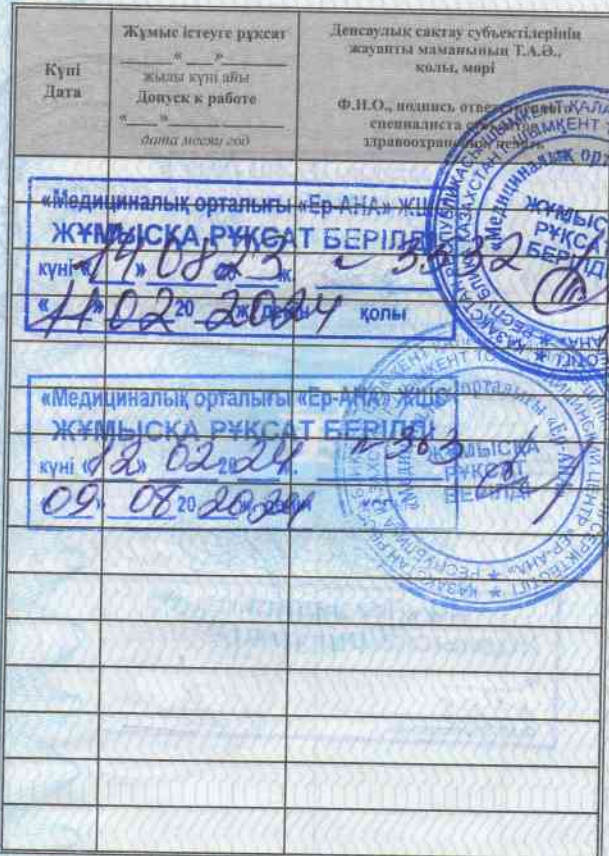 Күні
Дата
Жұмыс істеуге рұқсат
«___»
жылы күні айы
Допуск к работе
«___»
дата месяц год
Денсаулық сақтау субъектілерінің
жауапты маманының Т.А.Ә.,
қолы, мөрі
Ф.И.О., подпись
специалиста
«Медициналық орталығы «Ер-АНА» ЖШС
ЖҰМЫСҚА РҰҚСАТ БЕРІЛДІ
күні «14» 08 23 ж
«11» 02 20 2024 ж. дейін қолы
ЖҰМЫСҚА
РҰҚСАТ
БЕРІЛДІ
«Медициналық орталығы «Ер-АНА» ЖШС
ЖҰМЫСҚА РҰҚСАТ БЕРІЛДІ
күні «12» 02 2024. ~363
09 08 20 2024
ЖҰМЫСҚА
РҰҚСАТ
БЕРІЛДІ